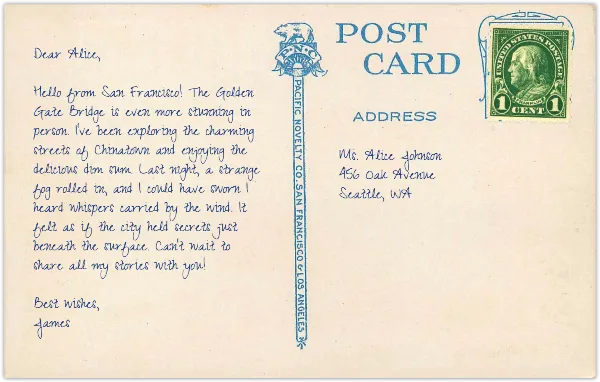 Dear Alice,
Hello from San Francisco! The Golden
Gate Bridge is even more stunning in
person. I've been exploring the charming
streets of Chinatown and enjoying the
delicious dim sum. Last night, a strange
fog rolled in, and I could have sworn I
heard whispers carried by the wind. It
felt as if the city held secrets just
beneath the surface. Can't wait to
share all my stories with you!
Best wishes,
James
P.N.C.
PACIFIC NOVELTY CO. SAN FRANCISCO & LOS ANGELES
POST
CARD
ADDRESS
Ms. Alice Johnson
456 Oak Avenue
Seattle, WA
UNITED STATES POSTAGE
FRANKLIN
1 CENT 1